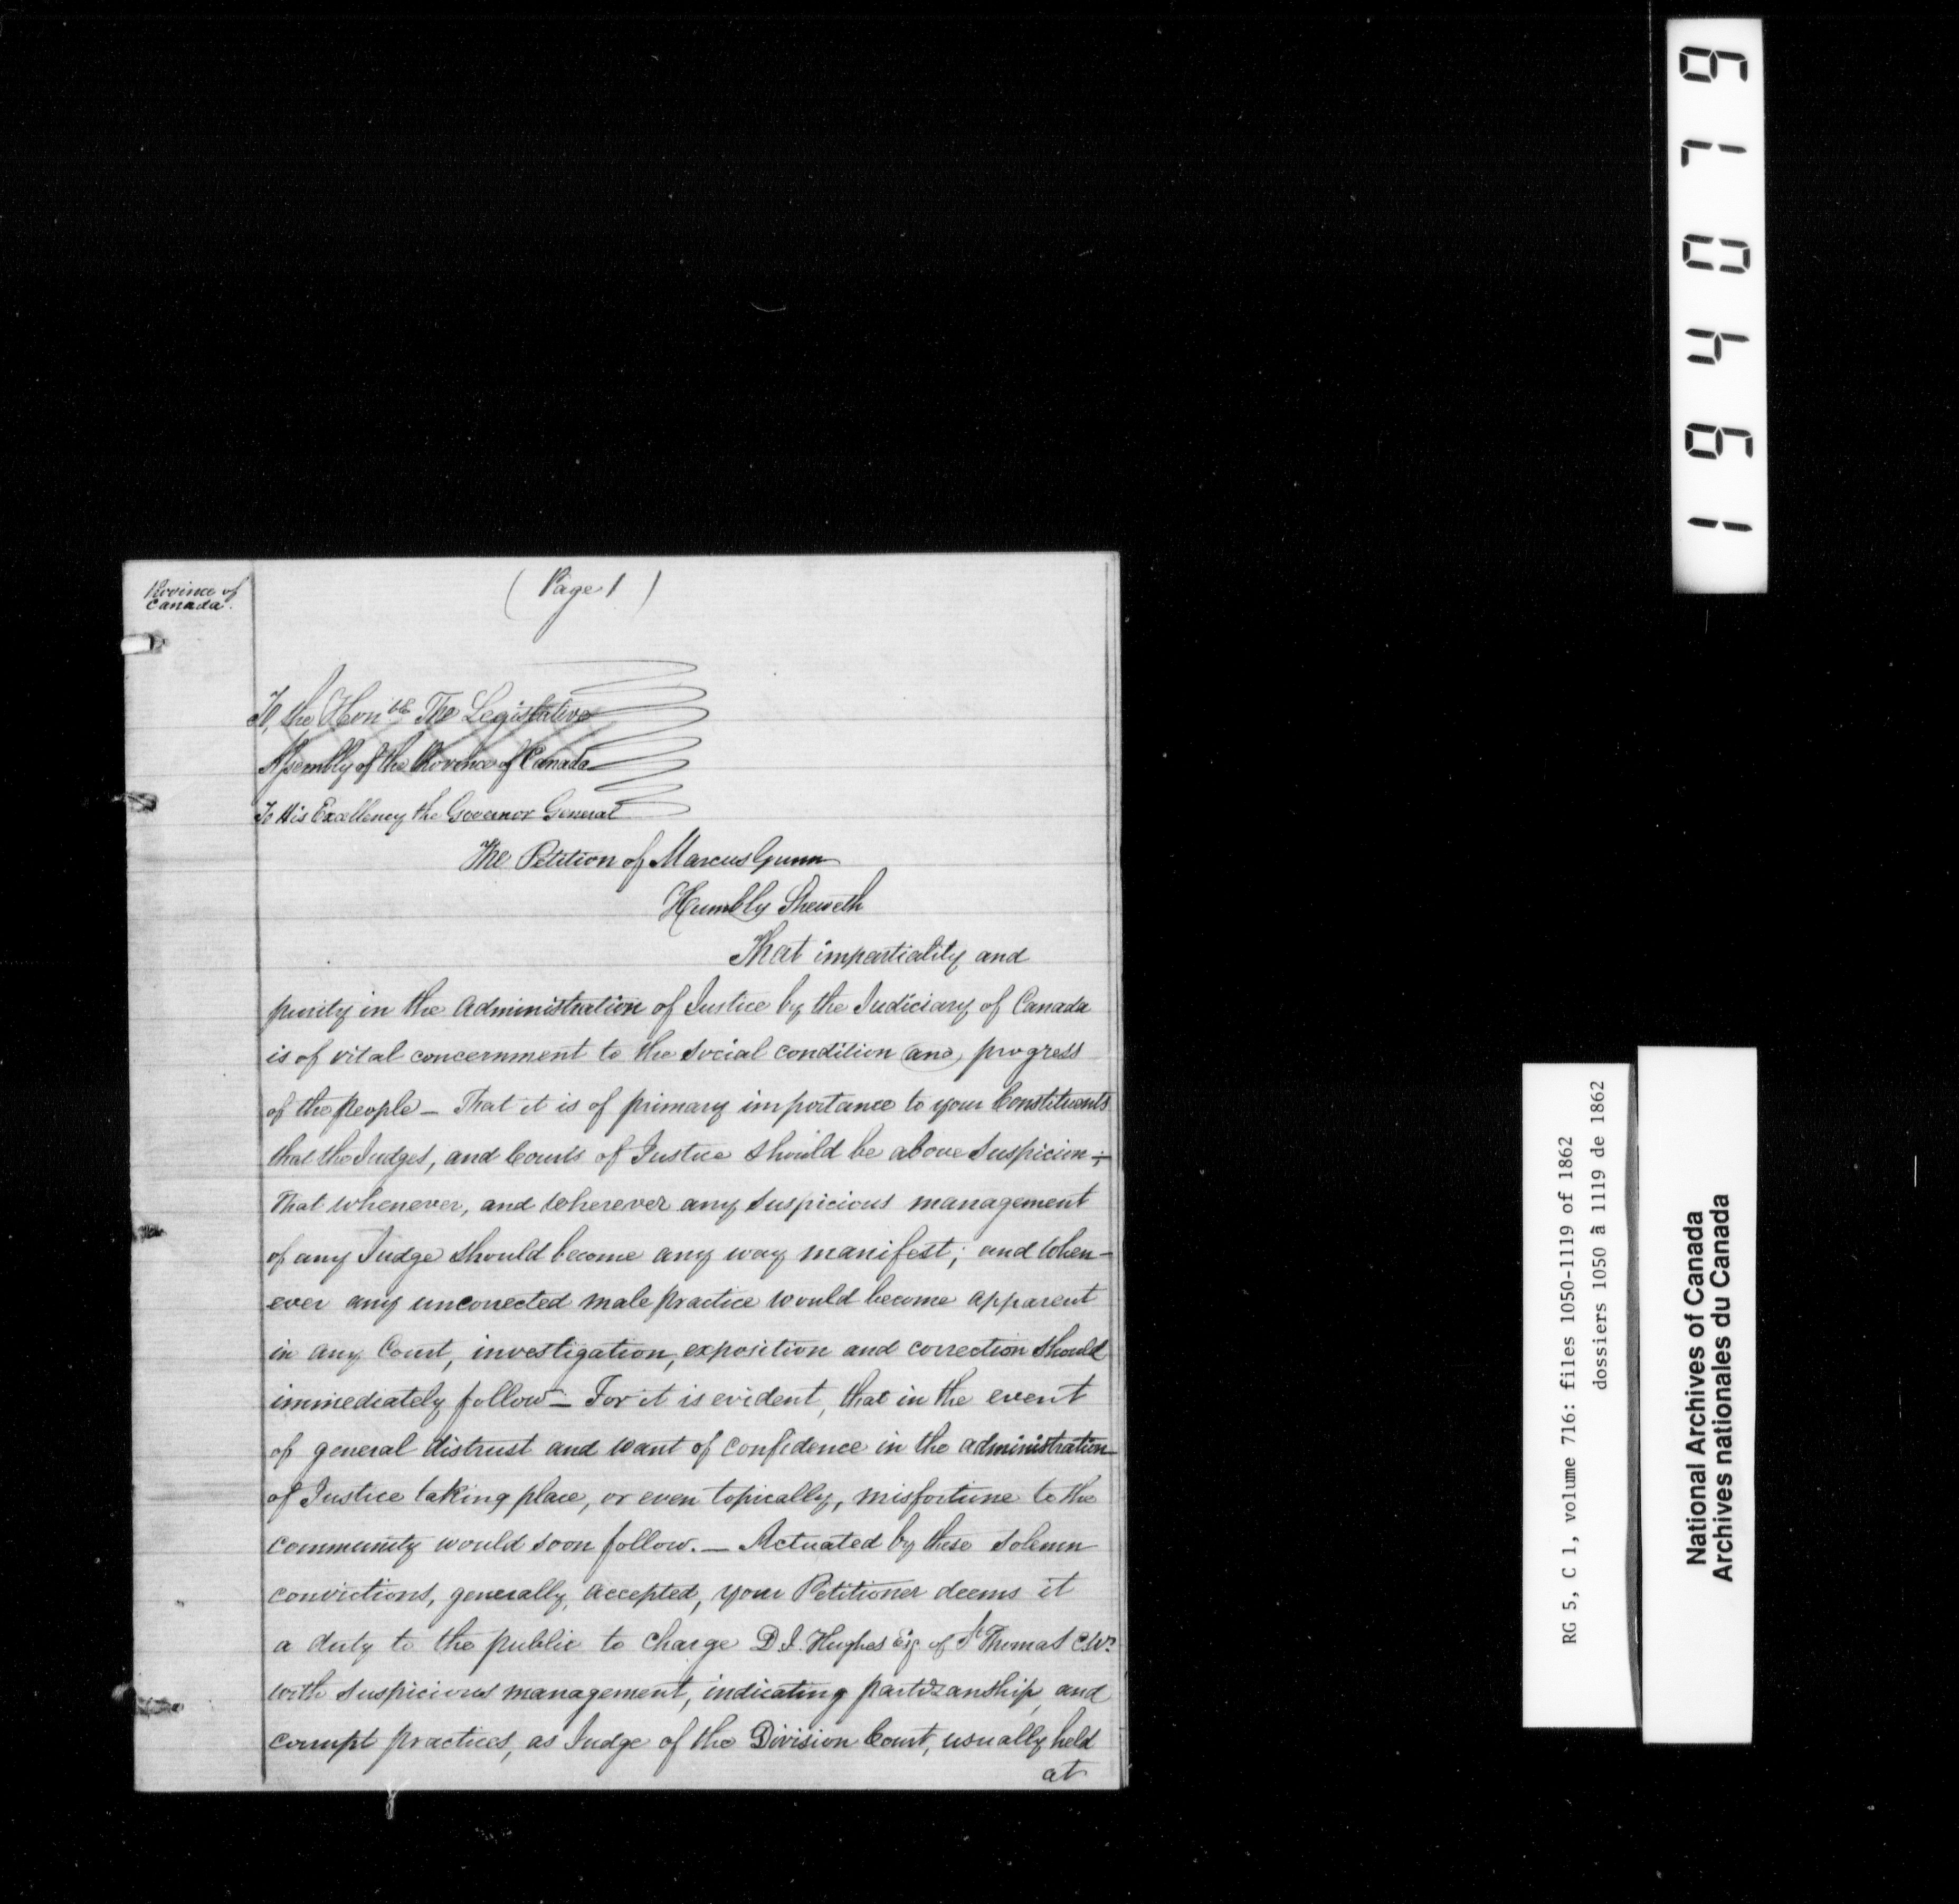 Province of
Canada.
( Page 1 )
To, the Honble The Legislative
Assembly of the Province of Canada
To His Excellency the Governor General
The Petition of Marcus Gunn
Humbly Sheweth
That impartiality and
purity in the administration of Justice by the Judiciary of Canada
is of vital concernment to the social condition (and) progress
of the people — That it is of primary importance to your Constituents
that the Judges, and Courts of Justice should be above suspicion ;—
That whenever, and wherever any suspicious management
of any Judge should become any way manifest; and when-
ever any unconected male practice would become apparent
in any Court, investigation, exposition and correction should
immediately follow — For it is evident, that in the event
of general distrust and want of confidence in the administration
of Justice taking place, or even topically, misfortune to the
community would soon follow. — Actuated by these solemn
convictions, generally, accepted, your Petitioner deems it
a duty to the public to charge D. J. Hughes Esq. of St Thomas C.W.
with suspicious management, indicating partizanship, and
corrupt practices, as Judge of the Division Court, usually held
at
194079
RG 5, C 1, volume 716: files 1050-1119 of 1862
dossiers 1050 à 1119 de 1862
National Archives of Canada
Archives nationales du Canada